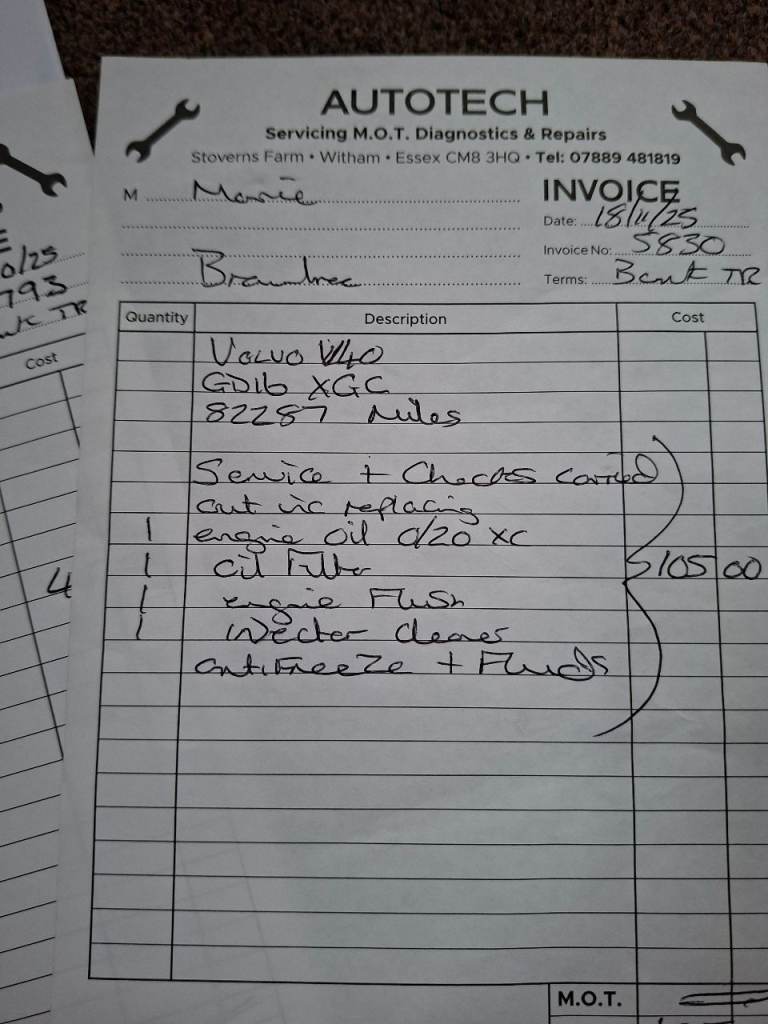 AUTOTECH
Servicing M.O.T. Diagnostics & Repairs
Stoverns Farm • Witham • Essex CM8 3HQ • Tel: 07889 481819
M Marie
INVOICE
Date: 18/11/25
Invoice No: 5830
Braintree
Terms: Bank TR
Quantity Description Cost
Volvo V40
GD16 XGC
82287 Miles
Service + Checks carried
out inc replacing
1 engine oil 0/20 XC
1 oil Filter 105 00
1 engine Flush
1 injector cleaner
antiFreeze + Fluids
M.O.T.
0/25
793
TR
Cost
4